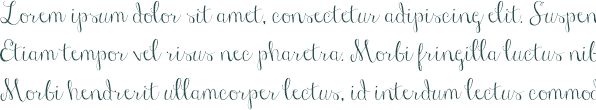 Lorem ipsum dolor sit amet, consectetur adipiscing elit. Suspen
Etiam tempor vel risus nec pharetra. Morbi fringilla luctus nib
Morbi hendrerit ullamcorper lectus, id interdum lectus commod